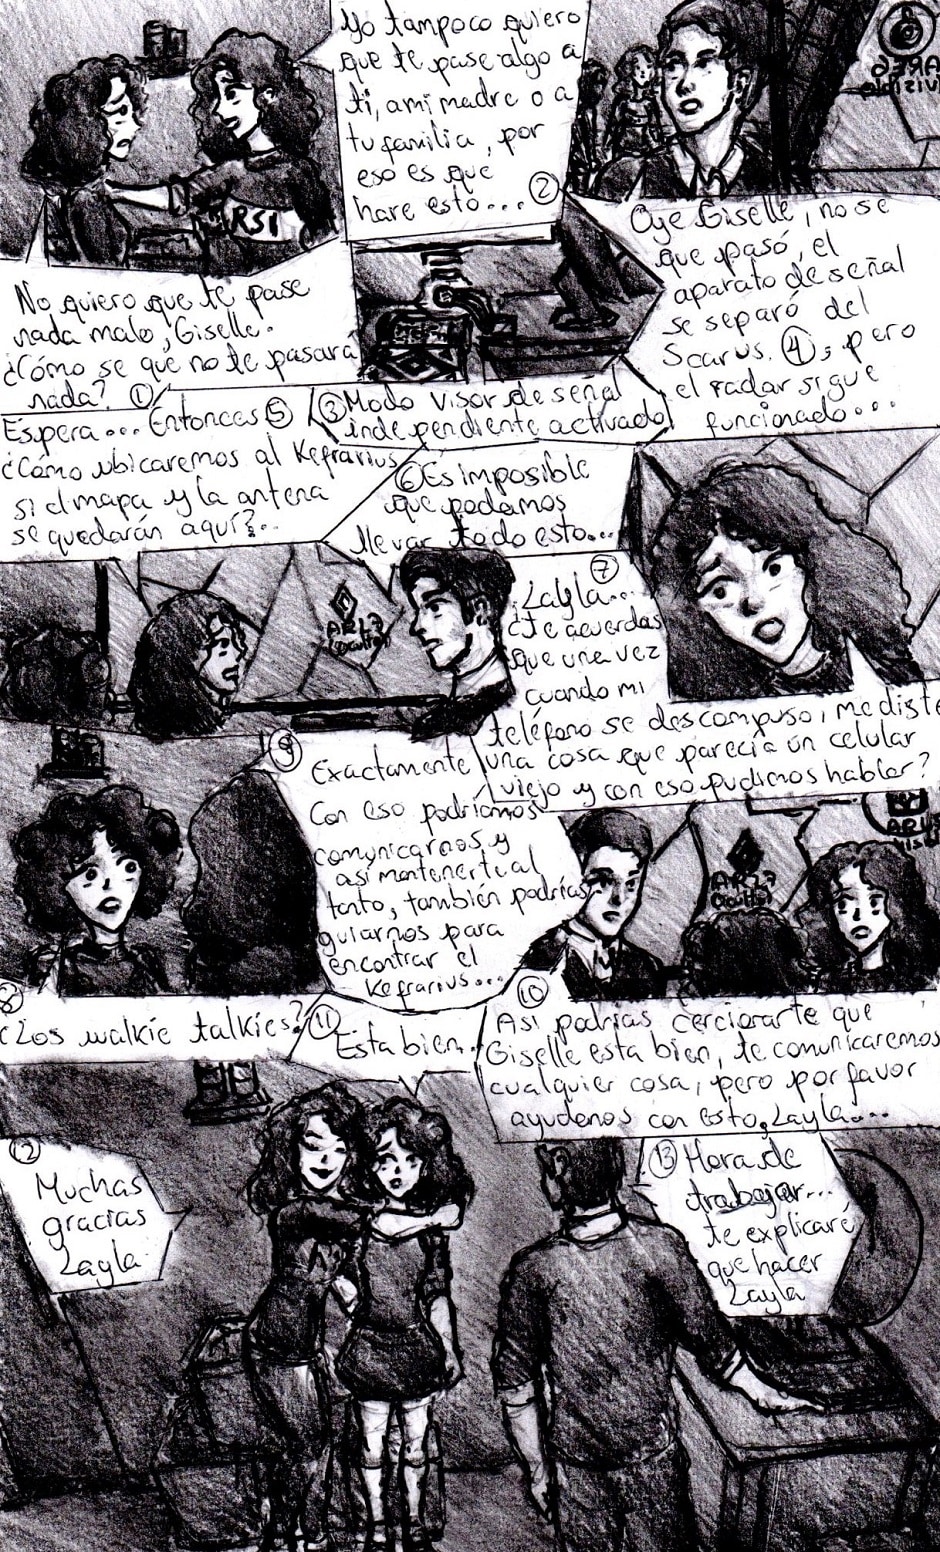 No quiero que te pase
nada malo, Giselle.
¿Cómo se que no te pasará
nada? ①
Yo tampoco quiero
que te pase algo a
ti, a mi madre o a
tu familia, por
eso es que
hare esto... ②
RSI
③ Modo visor de señal
independiente activado
Oye Giselle, no se
que pasó, el
aparato de señal
se separó del
Scarus. ④, pero
el radar sigue
funcionado...
Espera... Entonces ⑤
¿Cómo ubicaremos al Kefrarius
si el mapa y la antena
se quedarán aquí?...
⑥ Es imposible
que podamos
llevar todo esto...
⑦
¿Layla...
¿te acuerdas
que una vez
cuando mi
teléfono se descompuso, me diste
una cosa que parecía un celular
viejo y con eso pudimos hablar?
⑧
¿Los walkie talkies?
⑨ Exactamente
Con eso podríamos
comunicarnos y
así mantenerte al
tanto, también podrías
guiarnos para
encontrar el
Kefrarius...
⑩
Así podrías cerciorarte que
Giselle esta bien, te comunicaremos
cualquier cosa, pero por favor
ayudenos con esto, Layla...
⑪
Esta bien.
⑫
Muchas
gracias
Layla
⑬ Hora de
trabajar...
te explicaré
que hacer
Layla